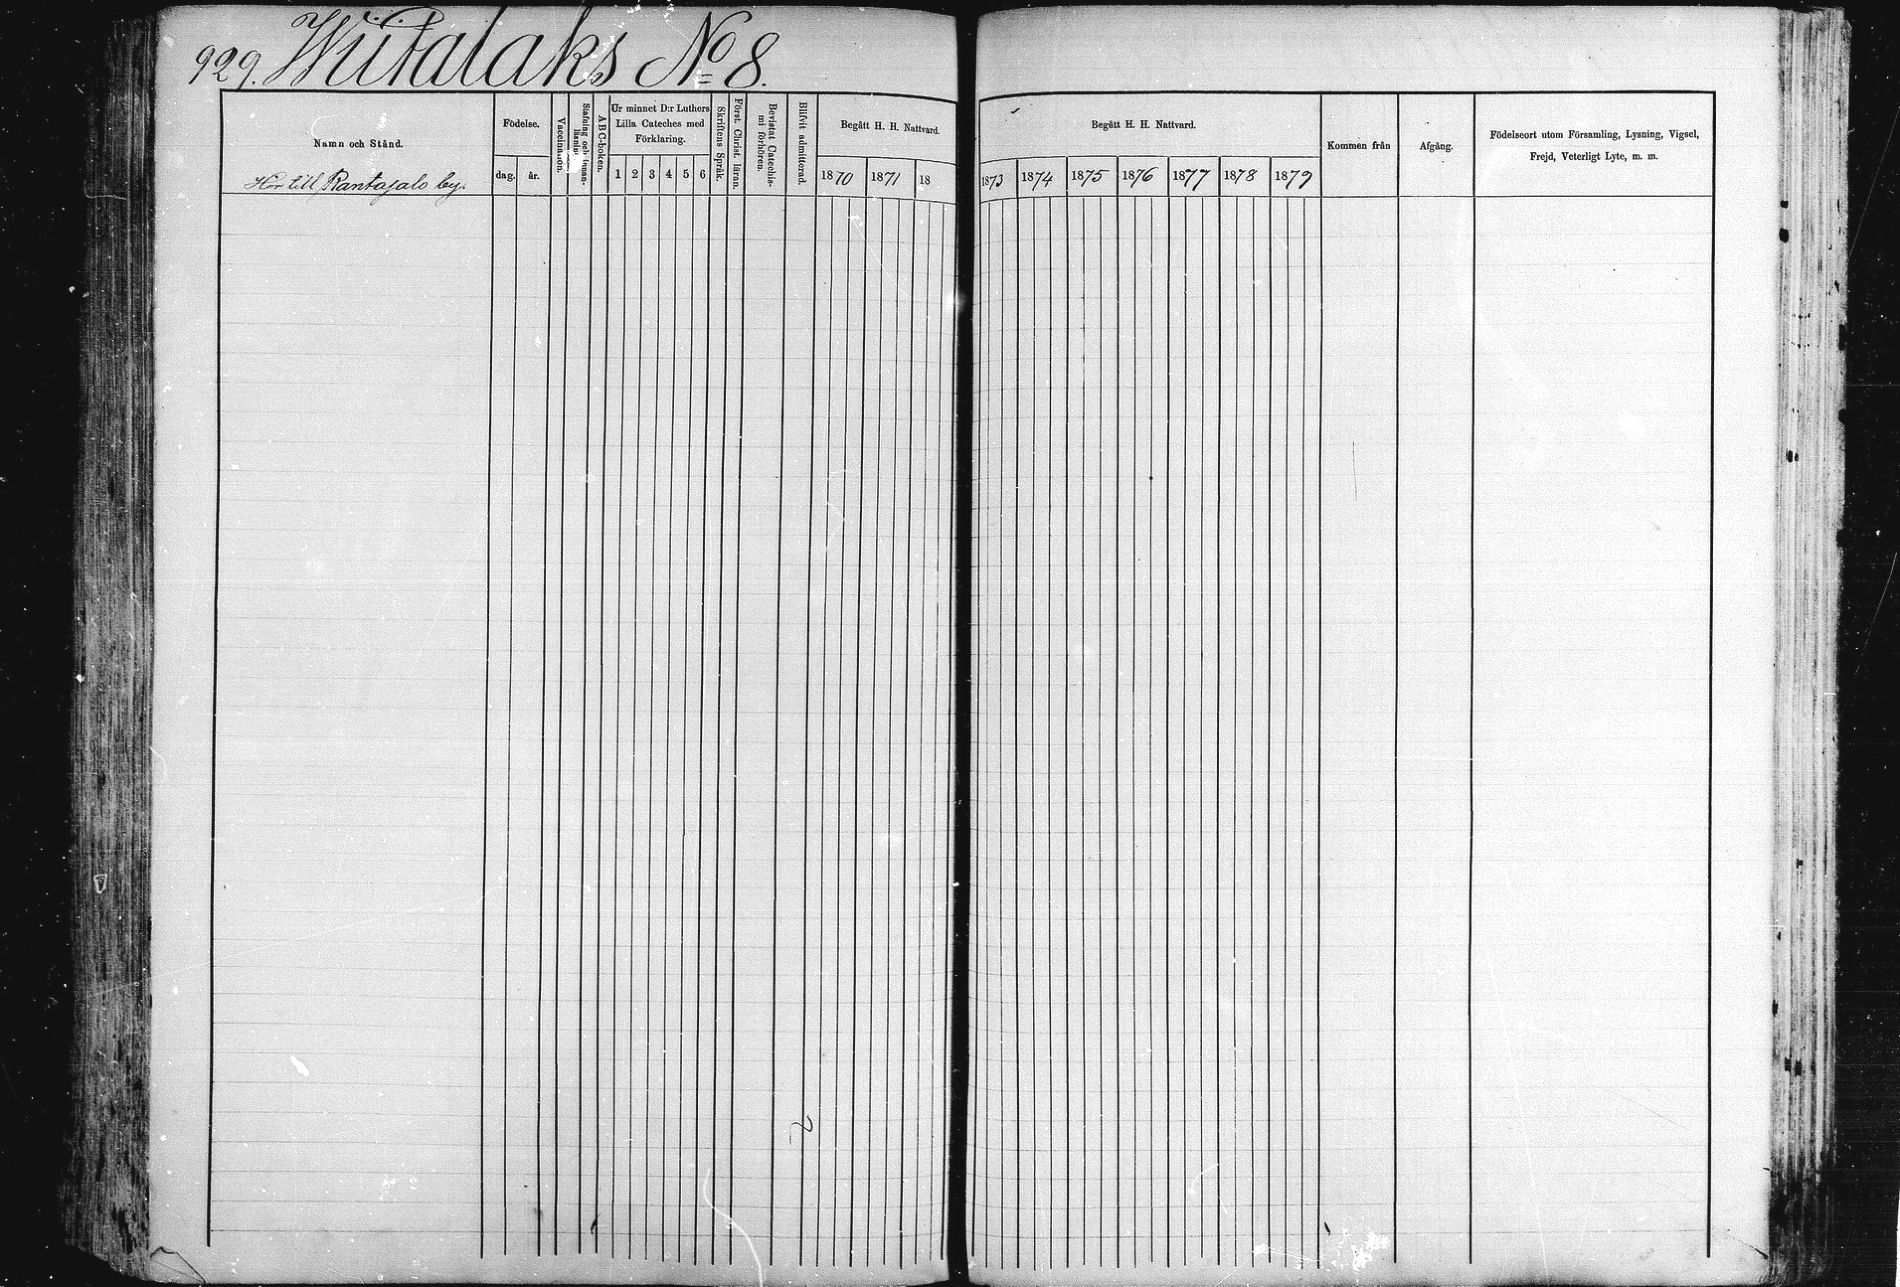 929. Wiitalaks No 8.
Namn och Stånd.
Hör till Rantasalo by.
Födelse.
dag. år.
Vaccination.
Stafning och innan-
läsning.
ABC-boken.
Ur minnet D:r Luthers
Lilla Cateches med
Förklaring.
1 2 3 4 5 6
Skriftens Språk.
Först. Christ. läran.
Bevistat Catechis-
mi förhören.
Blifvit admitterad.
Begått H. H. Nattvard.
1870 1871 18
Begått H. H. Nattvard.
1873 1874 1875 1876 1877 1878 1879
Kommen från
Afgång.
Födelseort utom Församling, Lysning, Vigsel,
Frejd, Veterligt Lyte, m. m.